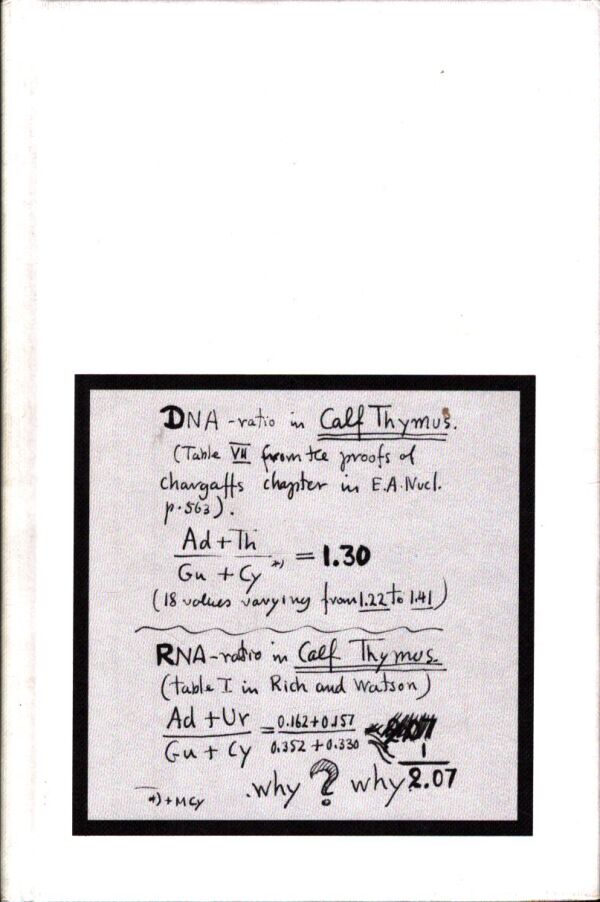 DNA-ratio in Calf Thymus.
(Table VII from the proofs of
chargaffs chapter in E.A. Nucl.
p. 563).
Ad + Th
Gu + Cy *) = 1.30
(18 values varying from 1.22 to 1.41)
RNA-ratio in Calf Thymus.
(table I in Rich and Watson)
Ad + Ur = 0.162 + 0.157
Gu + Cy 0.352 + 0.330
1
2.07
why ? why
*) + MCy